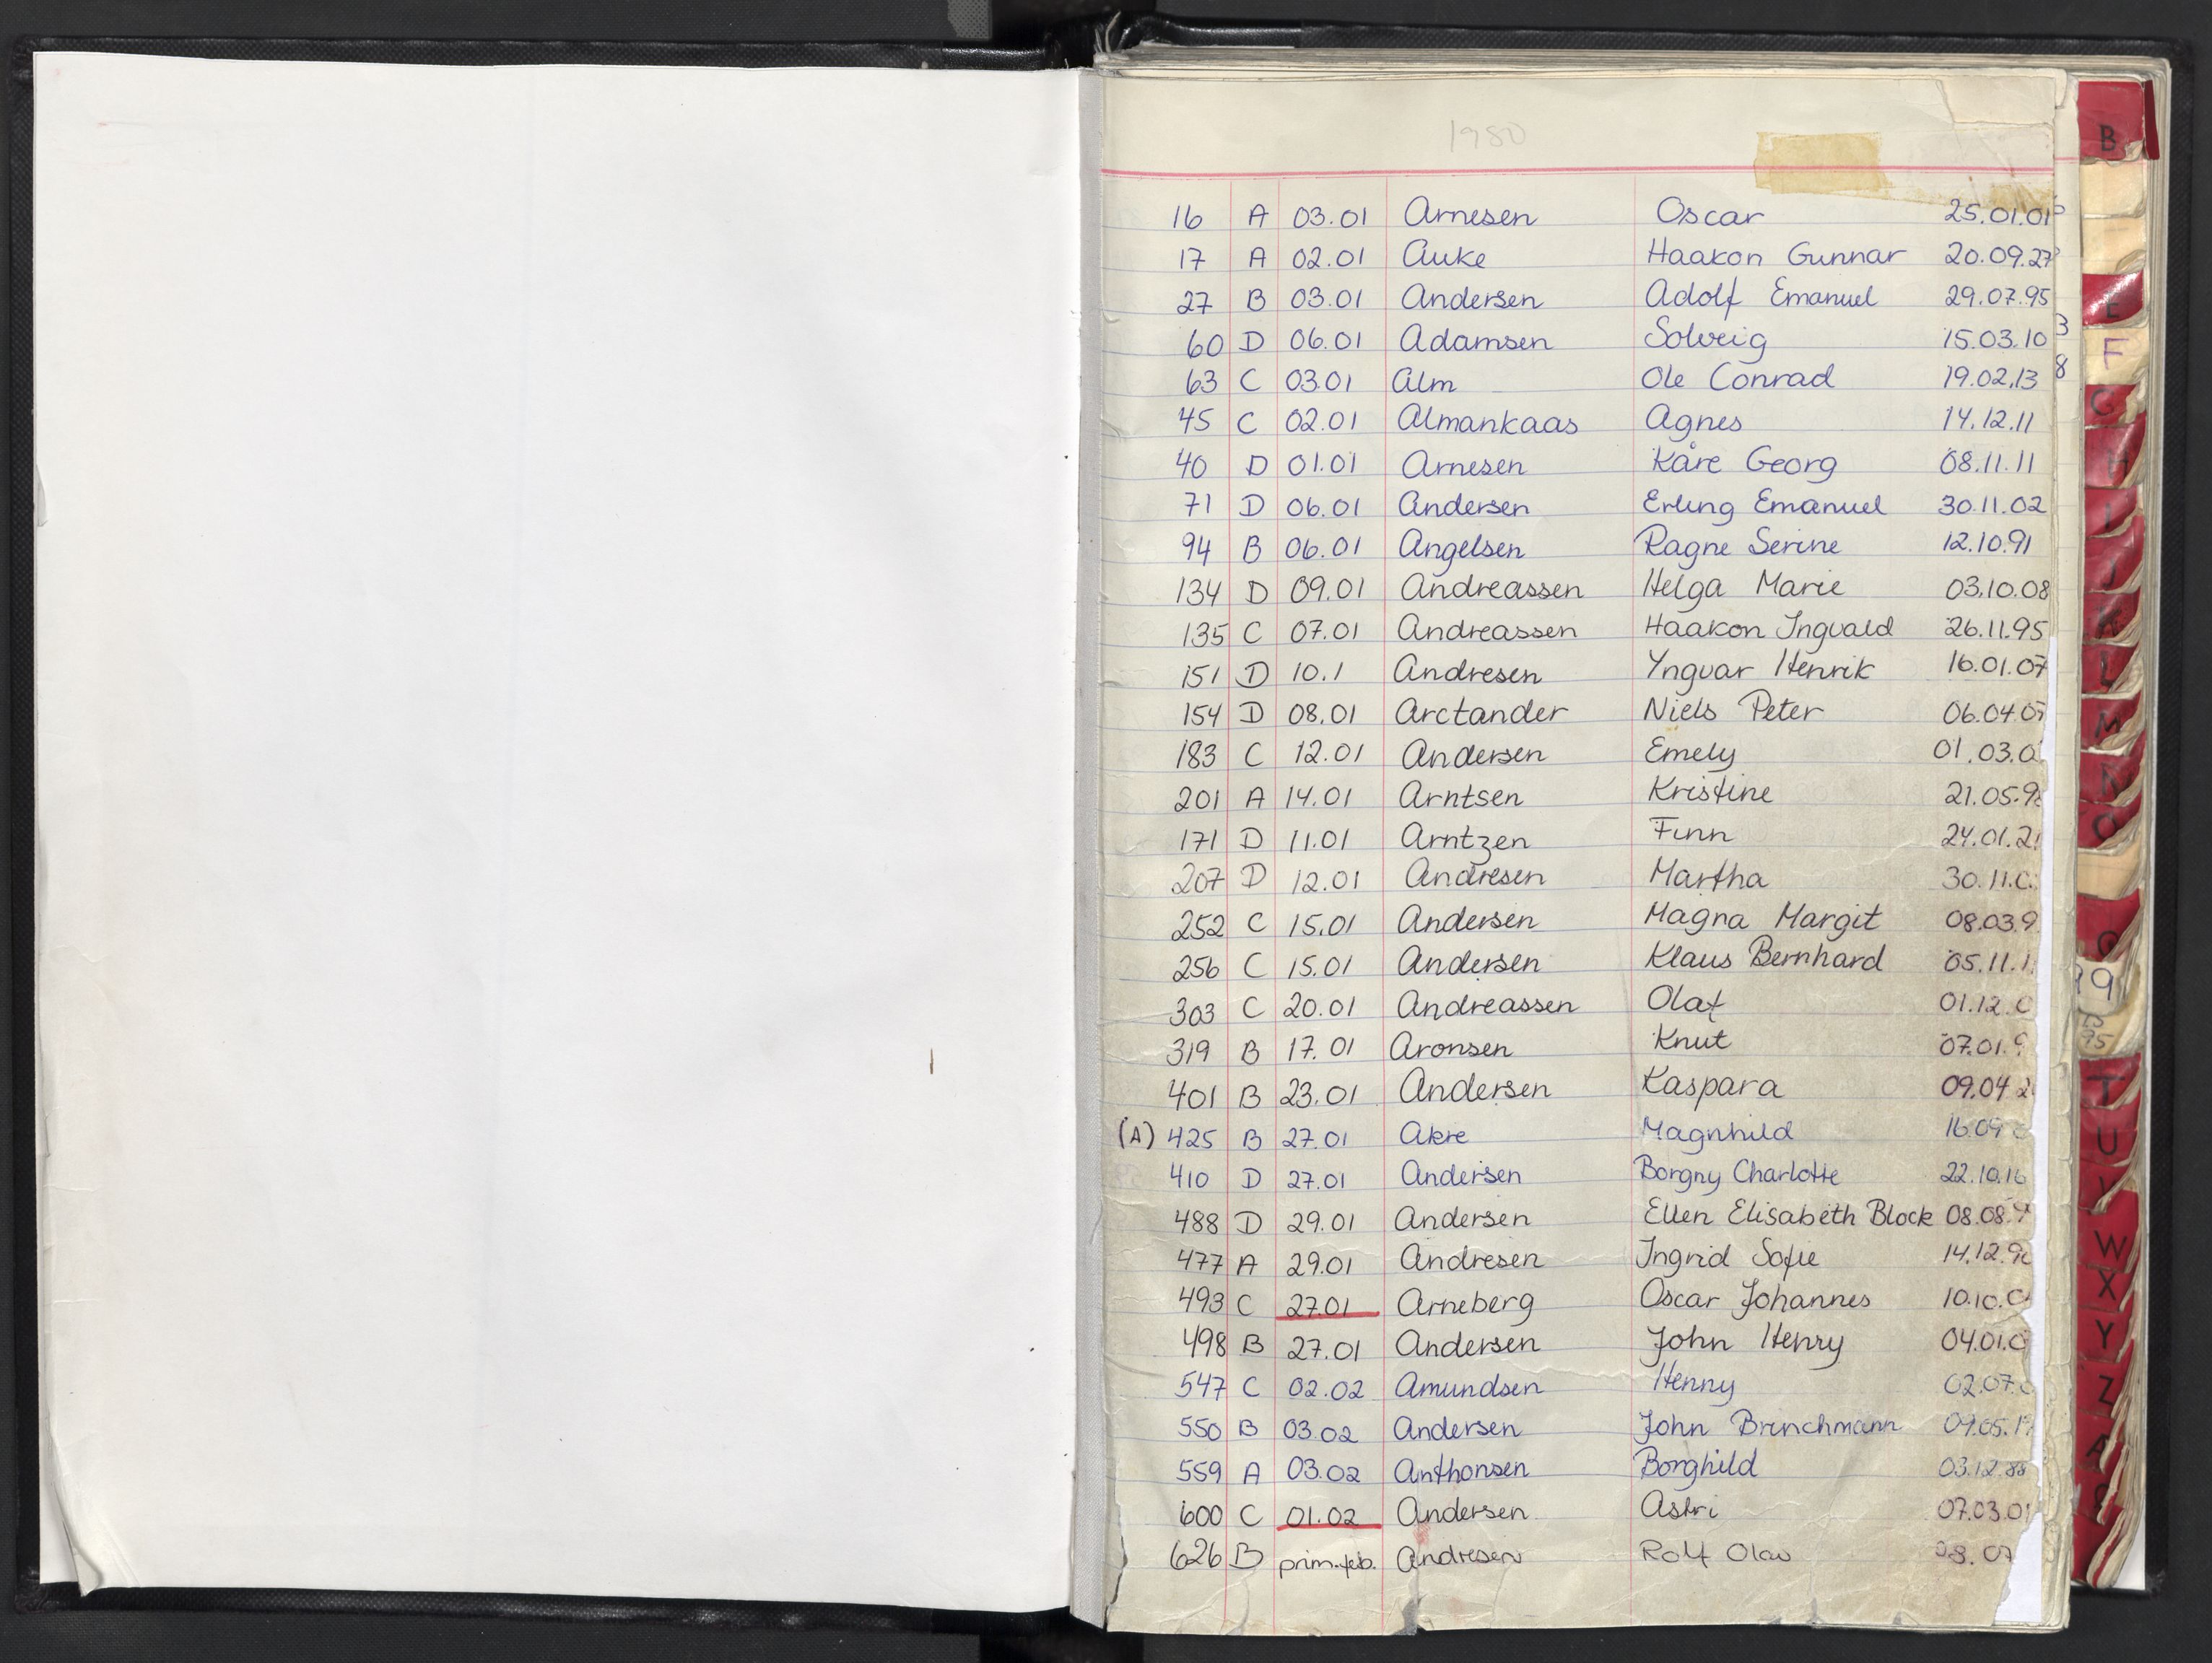 1980
B
16 A 03.01 Arnesen Oscar 25.01.01
17 A 02.01 Auke Haakon Gunnar 20.09.27
27 B 03.01 Andersen Adolf Emanuel 29.07.95
60 D 06.01 Adamsen Solveig 15.03.10
63 C 03.01 Alm Ole Conrad 19.02.13
45 C 02.01 Almankaas Agnes 14.12.11
40 D 01.01 Arnesen Kåre Georg 08.11.11
71 D 06.01 Andersen Erling Emanuel 30.11.02
94 B 06.01 Angelsen Ragne Serine 12.10.91
134 D 09.01 Andreassen Helga Marie 03.10.08
135 C 07.01 Andreassen Haakon Ingvald 26.11.95
151 D 10.1 Andresen Yngvar Henrik 16.01.07
154 D 08.01 Arctander Niels Peter 06.04.0
183 C 12.01 Andersen Emely 01.03.0
201 A 14.01 Arntsen Kristine 21.05.9
171 D 11.01 Arntzen Finn 24.01.2
207 D 12.01 Andresen Martha 30.11.0
252 C 15.01 Andersen Magna Margit 08.03.9
256 C 15.01 Andersen Klaus Bernhard 05.11.1
303 C 20.01 Andreassen Olaf 01.12.0
319 B 17.01 Aronsen Knut 07.01.9
401 B 23.01 Andersen Kaspara 09.04.2
(A) 425 B 27.01 Akre Magnhild 16.09
410 D 27.01 Andersen Borgny Charlotte 22.10.16
488 D 29.01 Andersen Ellen Elisabeth Block 08.08.
477 A 29.01 Andresen Ingrid Sofie 14.12.9
493 C 27.01 Arneberg Oscar Johannes 10.10.0
498 B 27.01 Andersen John Henry 04.01.0
547 C 02.02 Amundsen Henny 02.07.
550 B 03.02 Andersen John Brinchmann 09.05.1
559 A 03.02 Anthonsen Borghild 03.12.88
600 C 01.02 Andersen Astri 07.03.01
626 B prim.feb. Andresen Rolf Olav 07
E
F
G
H
I
J
K
L
M
N
O
T
U
V
W
X
Y
Z